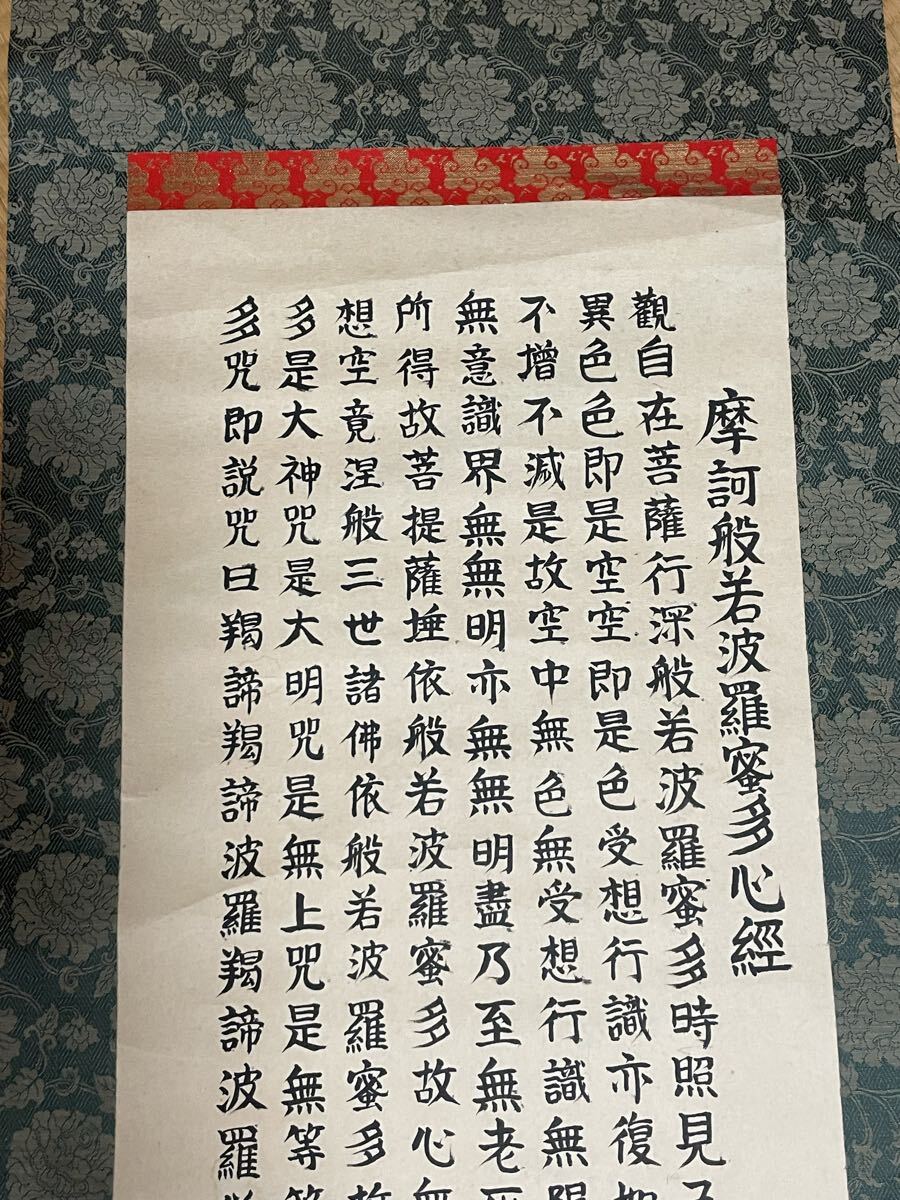 摩訶般若波羅蜜多心經
觀自在菩薩行深般若波羅蜜多時照見
異色色即是空空即是色受想行識亦復
不增不減是故空中無色無受想行識無
無意識界無無明亦無無明盡乃至無老
所得故菩提薩埵依般若波羅蜜多故心
想空竟涅般三世諸佛依般若波羅蜜多
多是大神咒是大明咒是無上咒是無等
多咒即説咒曰羯諦羯諦波羅羯諦波羅